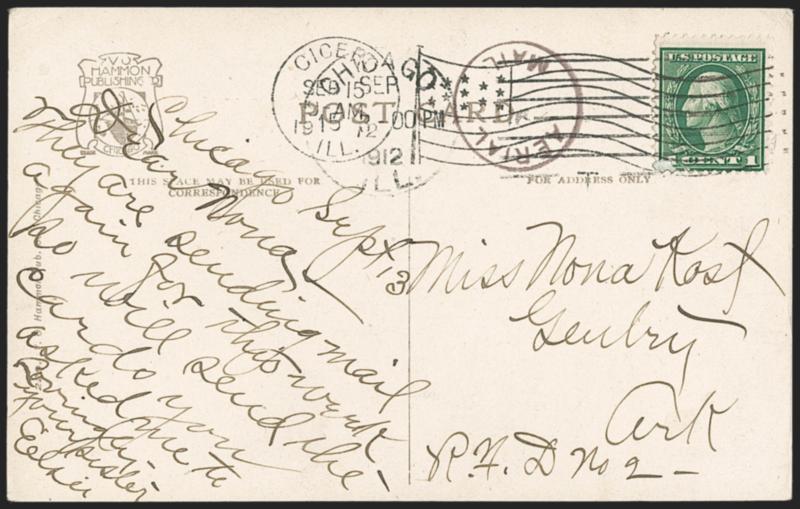 V.O.
HAMMON
PUBLISHING CO
CHICAGO
CICERO
SEP 15
AM
1912
ILL.
CHICAGO
SEP
12
00 PM
1912
ILL.
AERIAL MAIL
U.S. POSTAGE
1 CENT 1
POST CARD
THIS SPACE MAY BE USED FOR
CORRESPONDENCE
FOR ADDRESS ONLY
Chicago Sept 13
Dear Nona,
They are sending mail
again for this week
so will send the
cards you
asked me to
Lovingly
your sister
Miss Nona Kost
Gentry
Ark
R.F.D No 2